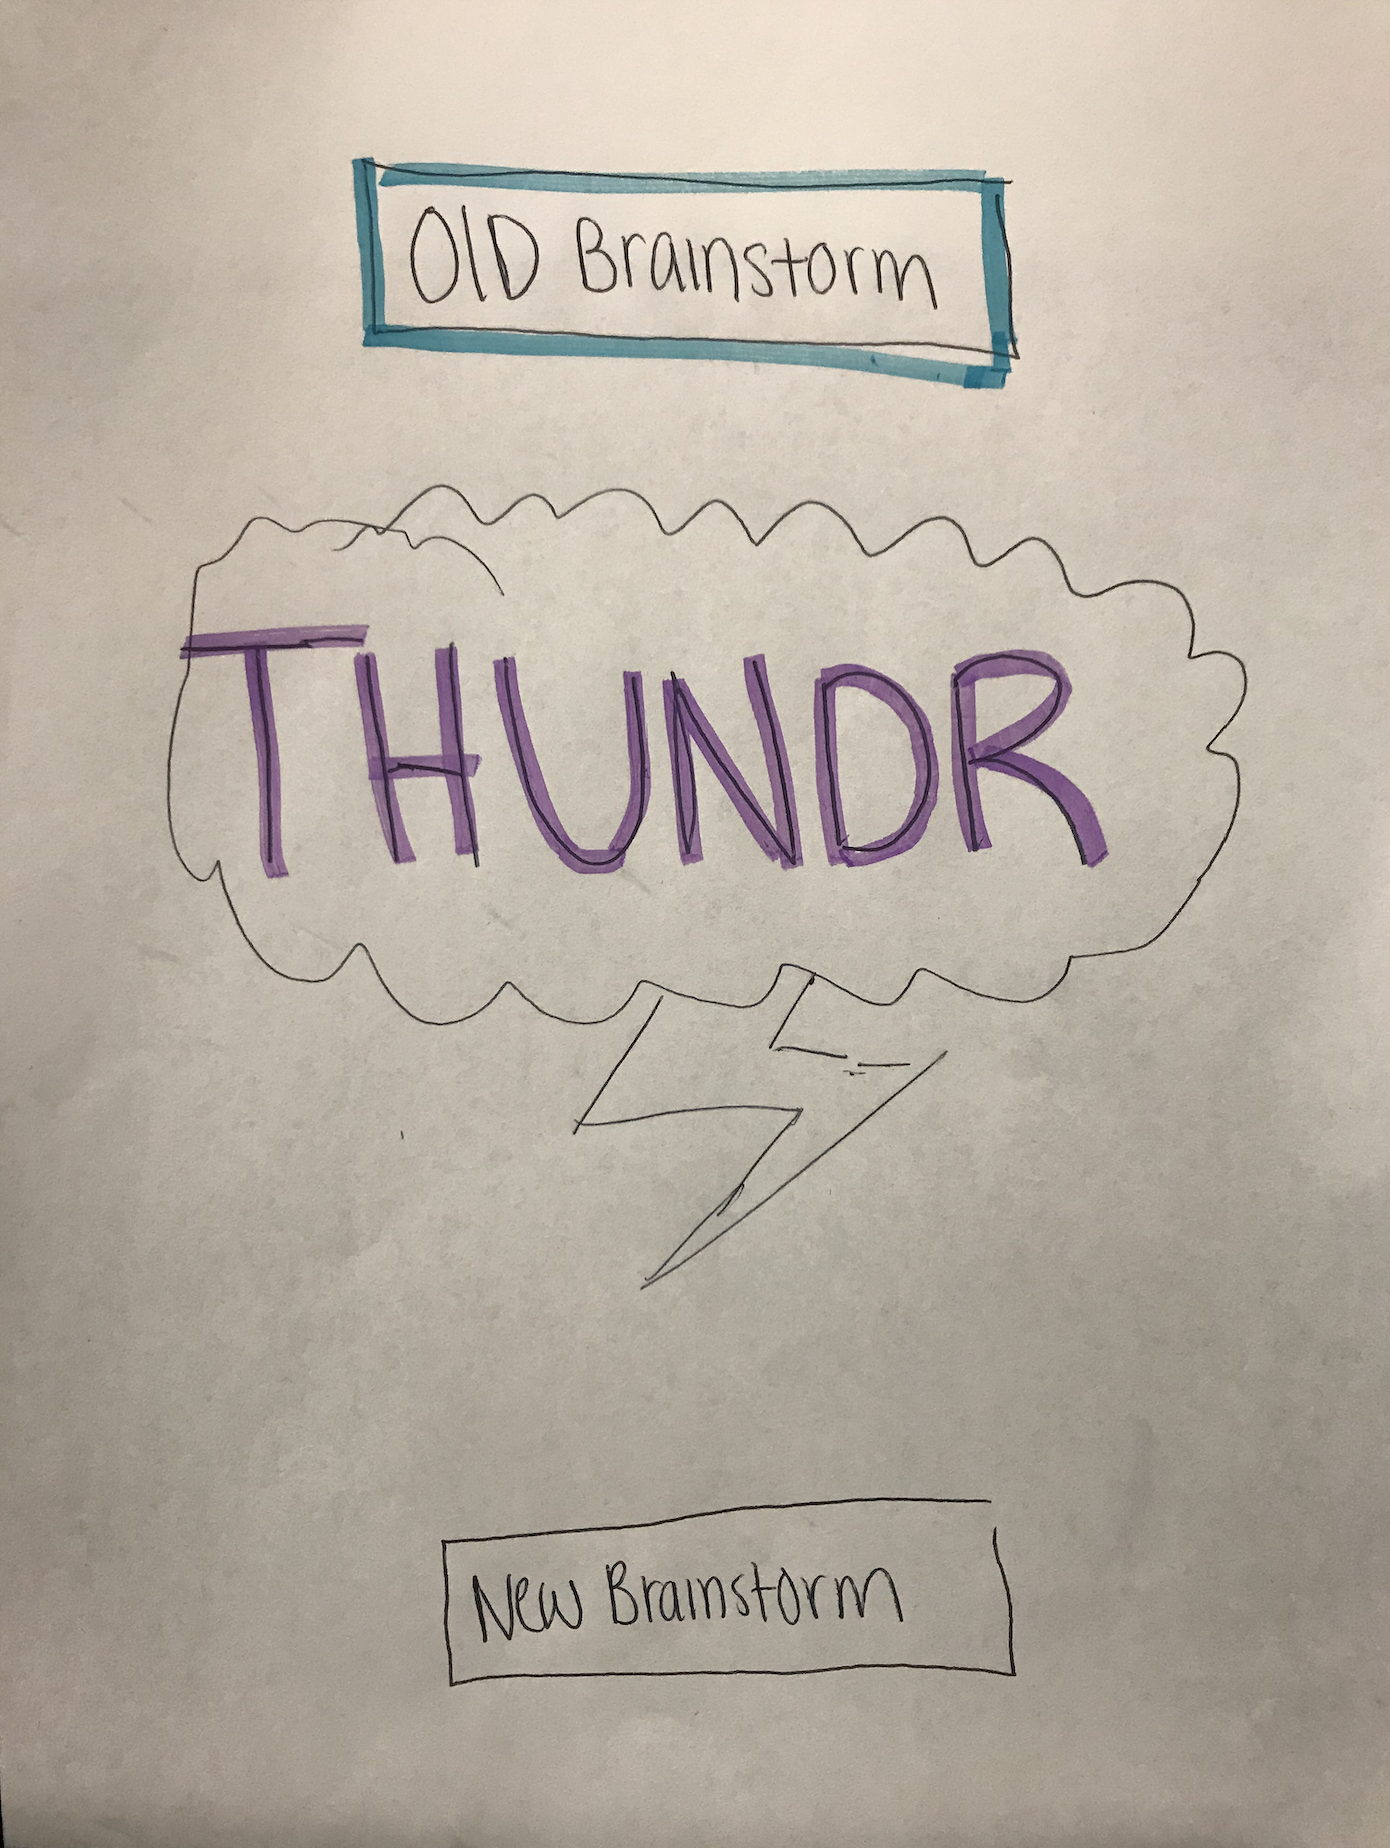 OlD Brainstorm
THUNDR
New Brainstorm